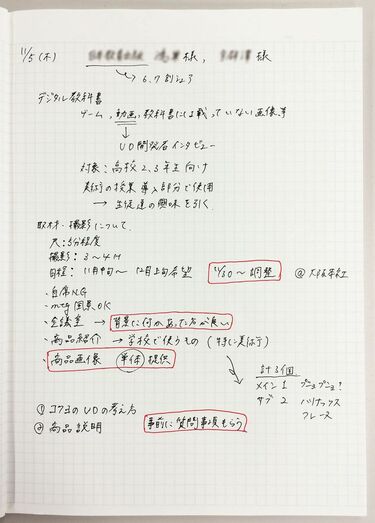 11/5(木) 様, 様
デジタル教科書
ゲーム, 動画, 教科書には載っていない画像等
UD開発者インタビュー
対象:高校2,3年生向け
授業導入部分で使用
→ 生徒達の興味を引く.
取材・撮影について
尺:5分程度
撮影:3〜4M
日程:11月中旬〜12月上旬希望 11/20〜調整 @大阪本社
・自席NG
・mtg風景OK
・会議室 → 背景に何かあった方が良い
・商品紹介 → 学校で使うもの
・商品画像 単体 提供
計3個
メイン 1 プニュプニュ?
サブ 2 ハリナックス
プレーヌ
① コクヨのUDの考え方
② 商品説明 事前に質問事項もらう